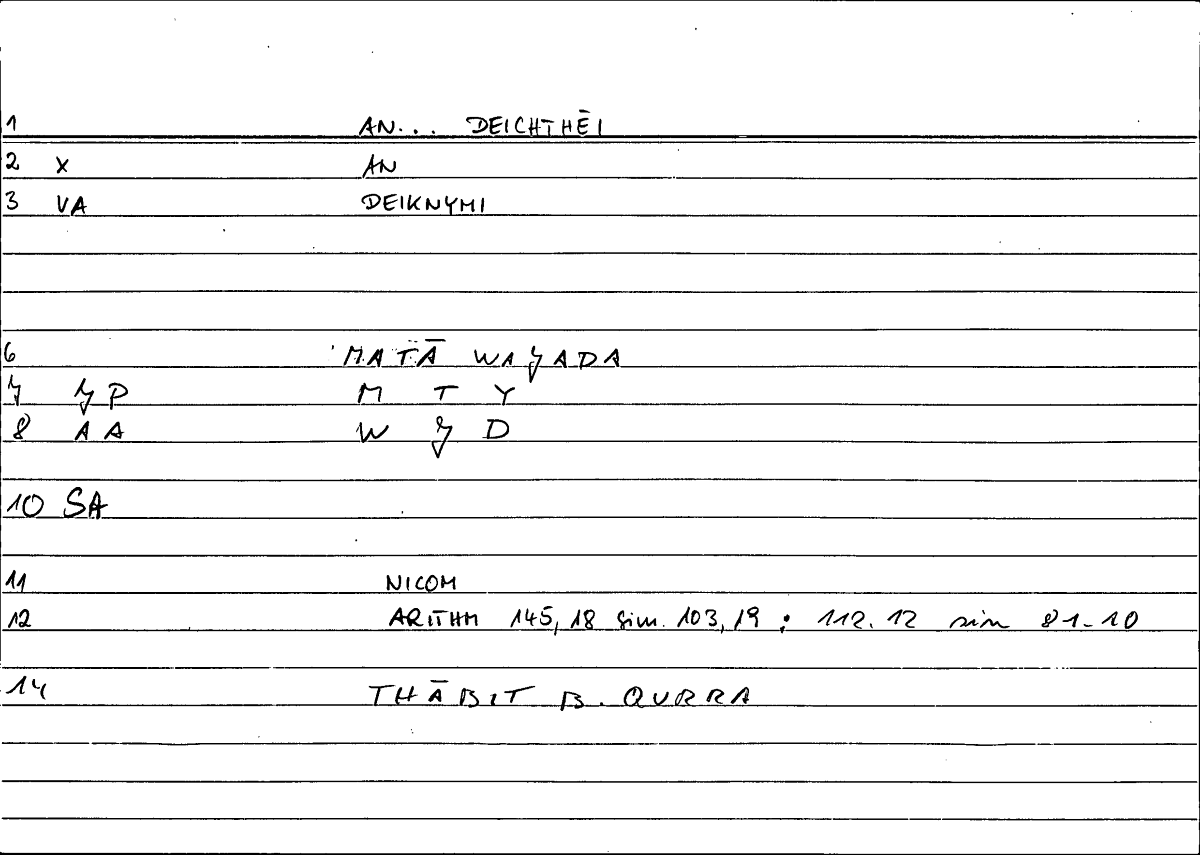 1 AN... DEICHTHĒI
2 X AN
3 VA DEIKNYMI
6 MATĀ WAJADA
7 JP M T Y
8 AA W J D
10 SA
11 NICOM
12 ARITHM 145,18 sim. 103,19 ; 112.12 sim 81-10
14 THĀBIT B. QURRA